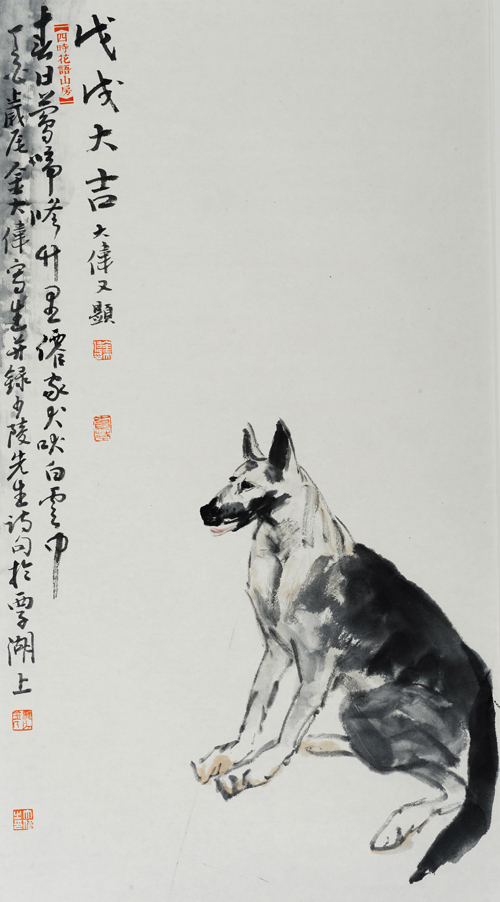 戊戌大吉
大偉又題
【四時花語山房】
春日鶯啼修竹里僊家犬吠白雲間
丁酉歲尾金大偉寫生并録少陵先生詩句於西子湖上